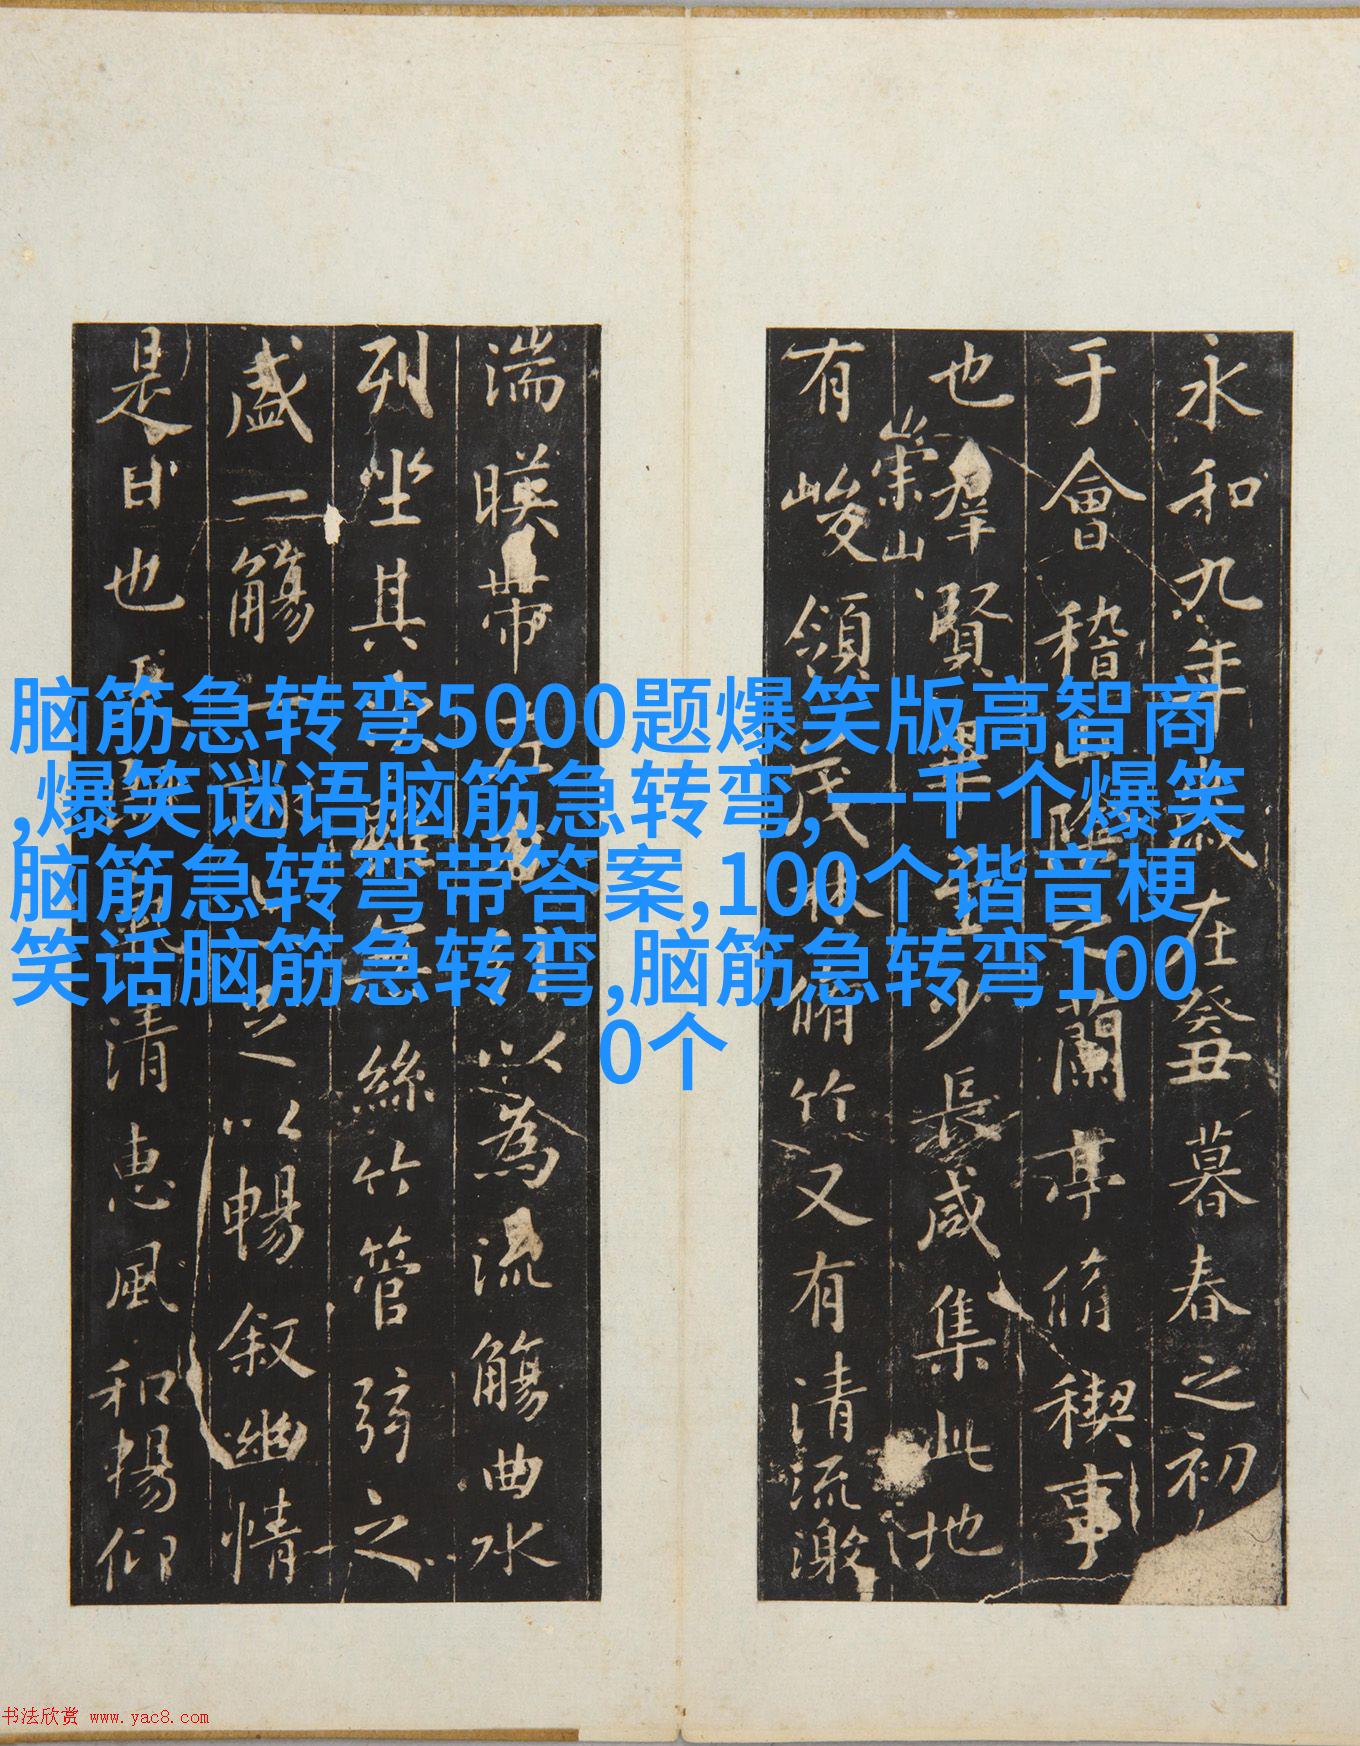 永和九年歲在癸丑暮春之初
于會稽山陰之蘭亭脩稧事
也群賢畢至少長咸集此地
有崇山峻領茂林脩竹又有清流激
湍暎帶左右引以為流觴曲水
列坐其次雖無絲竹管弦之
盛一觴一詠亦足以暢敘幽情
是日也天朗氣清惠風和暢仰
脑筋急转弯5000题爆笑版高智商
,爆笑谜语脑筋急转弯,一千个爆笑
脑筋急转弯带答案,100个谐音梗
笑话脑筋急转弯,脑筋急转弯100
0个
书法欣赏 www.yac8.com